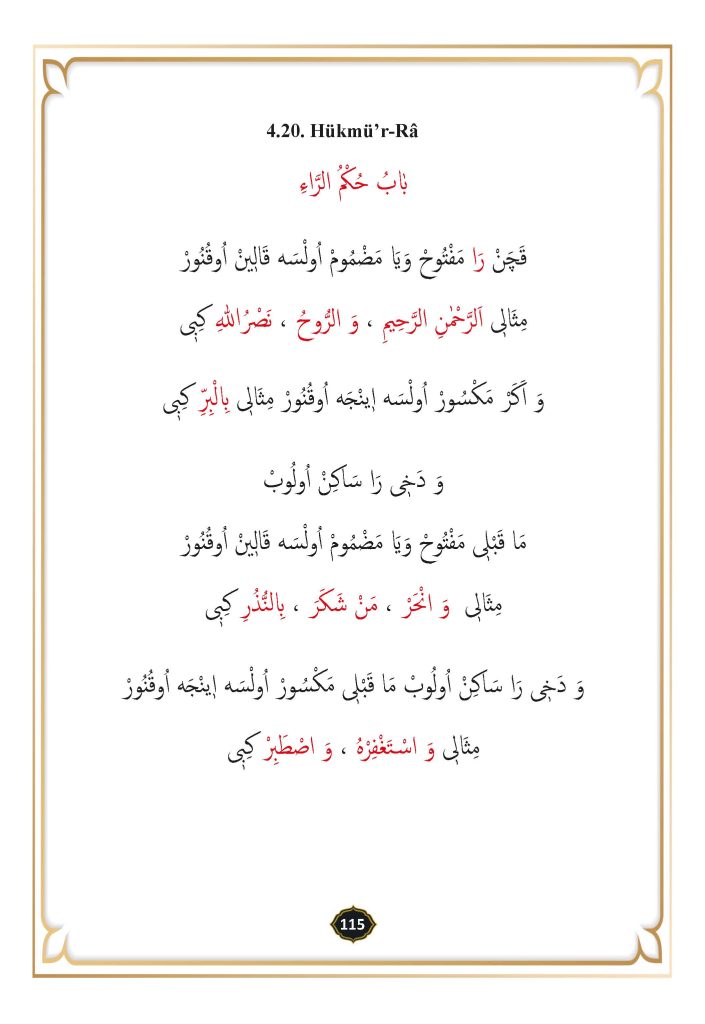 4.20. Hükmü’r-Râ
بَابُ حُكْمُ الرَّاءِ
قَچَنْ رَا مَفْتُوحْ وَيَا مَضْمُومْ اُولْسَه قَالِينْ اُوقُنُورْ
مِثَالِى اَلرَّحْمٰنِ الرَّحِيمِ ، وَ الرُّوحُ ، نَصْرُاللهِ كِبِى
وَ اَكَرْ مَكْسُورْ اُولْسَه اِينْجَه اُوقُنُورْ مِثَالِى بِالْبِرِّ كِبِى
وَ دَخِى رَا سَاكِنْ اُولُوبْ
مَا قَبْلِى مَفْتُوحْ وَيَا مَضْمُومْ اُولْسَه قَالِينْ اُوقُنُورْ
مِثَالِى وَ انْحَرْ ، مَنْ شَكَرَ ، بِالنُّذُرِ كِبِى
وَ دَخِى رَا سَاكِنْ اُولُوبْ مَا قَبْلِى مَكْسُورْ اُولْسَه اِينْجَه اُوقُنُورْ
مِثَالِى وَ اسْتَغْفِرْهُ ، وَ اصْطَبِرْ كِبِى
115